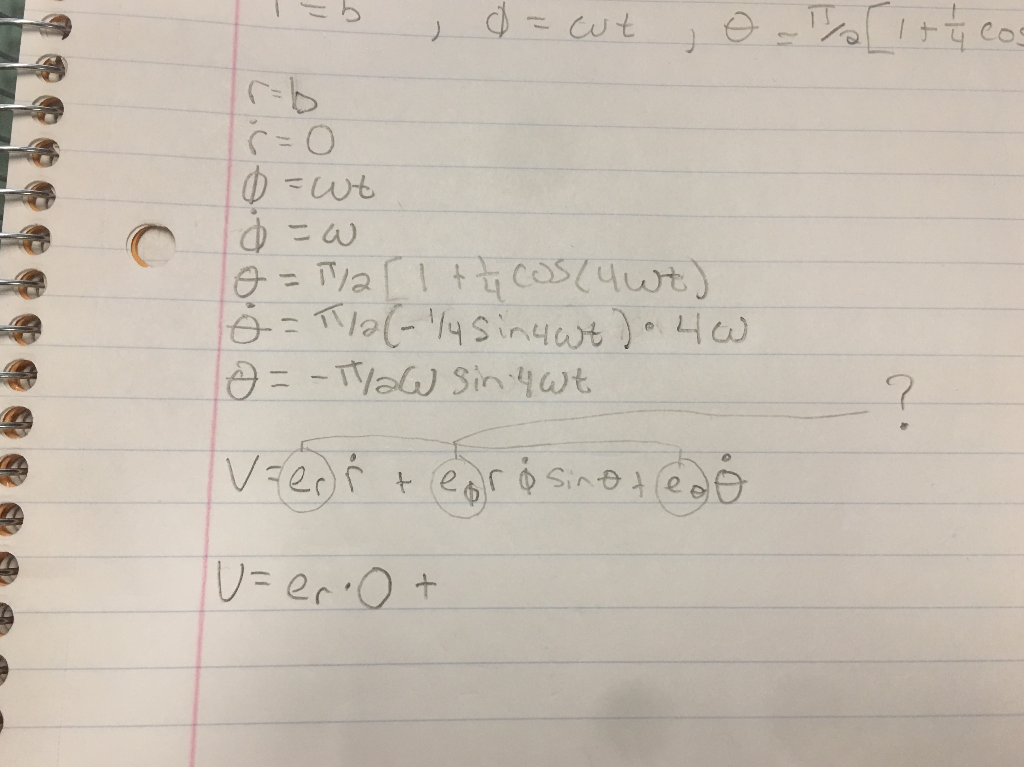 r = b , ϕ = ωt , θ = π/2[ 1 + 1/4 cos
r = b
ṙ = 0
ϕ = ωt
ϕ̇ = ω
θ = π/2 [ 1 + 1/4 cos(4ωt)
θ̇ = π/2(- 1/4 sin4ωt) • 4ω
θ = - π/2 ω sin 4ωt
?
V = e_r ṙ + e_ϕ r ϕ̇ sinθ + e_θ θ̇
V = e_r · 0 +